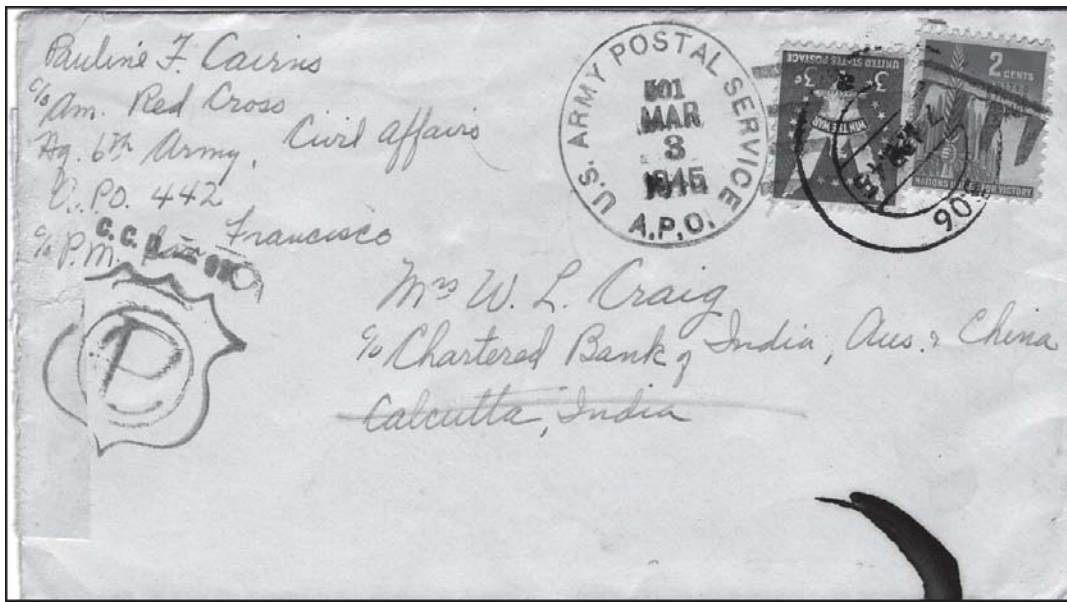 Pauline F. Cairns
c/o Am. Red Cross
Hq. 6th Army, Civil Affairs
A.P.O. 442
c/o P.M. San Francisco
C.C.
P
U.S. ARMY POSTAL SERVICE
501
MAR
3
1945
A.P.O.
UNITED STATES POSTAGE
3¢ 3¢
WIN THE WAR
2 CENTS
NATIONS UNITED FOR VICTORY
906
Mrs W. L. Craig
c/o Chartered Bank of India, Aus. & China
Calcutta, India